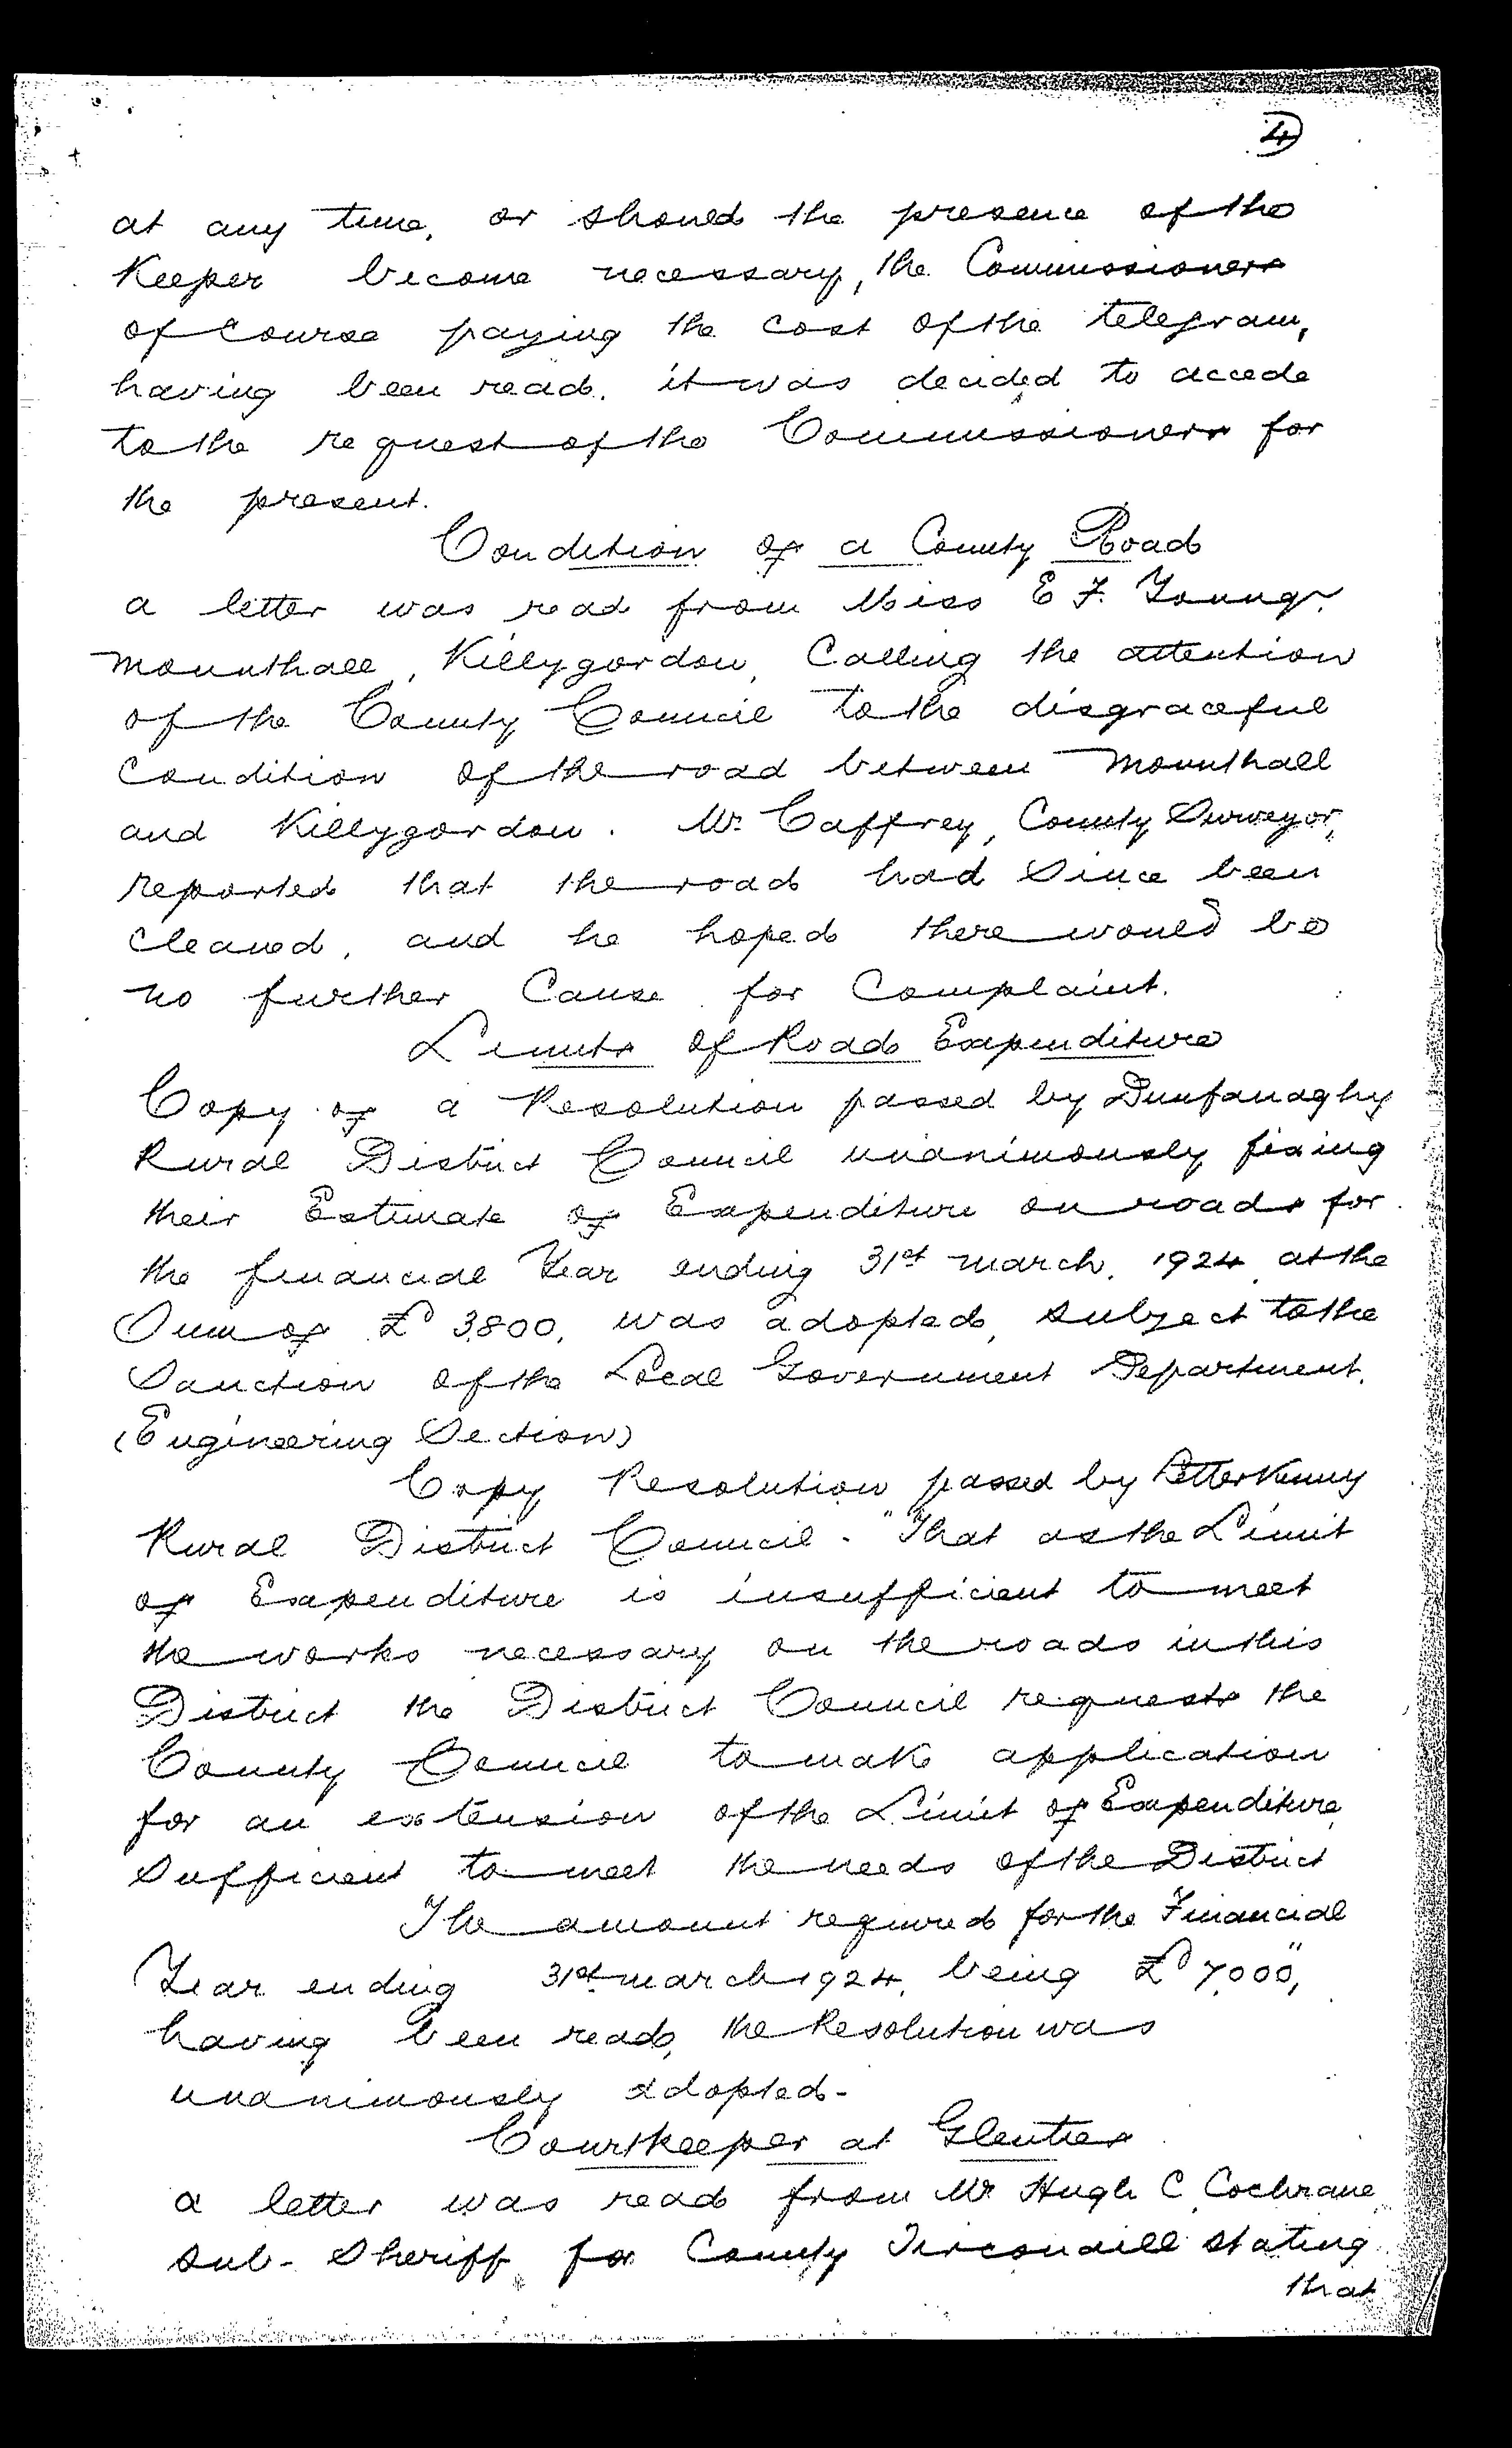 4
at any time, or should the presence of the
Keeper become necessary, the Commissioners
of course paying the cost of the telegram,
having been read, it was decided to accede
to the request of the Commissioners for
the present.
Condition of a County Road
a letter was read from Miss E F. Young.
Mounthall, Killygordon, Calling the attention
of the County Council to the disgraceful
Condition of the road between Mounthall
and Killygordon. Mr. Caffrey, County Surveyor,
reported that the road had Since been
Cleaned, and he hoped there would be
no further Cause for Complaint.
Limits of Road Expenditure
Copy of a Resolution passed by Dunfanaghy
Rural District Council unanimously fixing
their Estimate of Expenditure on roads for
the financial Year ending 31st March, 1924 at the
Sum of £3800, was adopted, subject to the
Sanction of the Local Government Department.
(Engineering Section)
Copy Resolution passed by Letterkenny
Rural District Council - "That as the Limit
of Expenditure is insufficient to meet
the works necessary on the roads in this
District the District Council requests the
County Council to make application
for an extension of the Limit of Expenditure
Sufficient to meet the needs of the District
The amount required for the Financial
Year ending 31st March 1924, being £7,000",
having been read, the Resolution was
unanimously adopted-
Courtkeeper at Glenties
a letter was read from Mr Hugh C Cochrane
sub-Sheriff for County Tirconaill stating
that